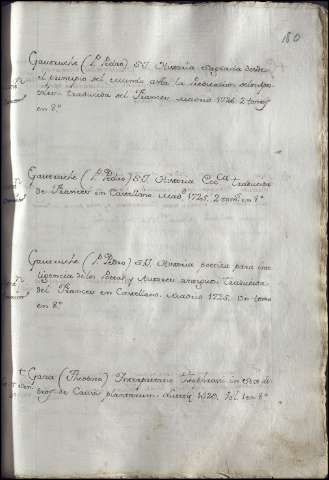 180
Gautruche (P. Pedro) S.J. Historia Sagrada desde
el principio del mundo asta la Predicacion
traducida del Frances. Madrid 1726. 2 tomos
en 8º
Gautruche (P. Pedro) S.J. Historia traducida
de Frances en Castellano. Mad. 1725. 2 tom. en 8º
Gautruche (P. Pedro) S.J. Historia poetica para inte
ligencia de los Poetas y Autores antiguos: traducida
del Frances en Castellano. Madrid 1725. Un tomo
en 8º
Gaza (Theodoro) Interpretatio Theophrasti
de Causis plantarum. 1529. Vol. 1 en 8º